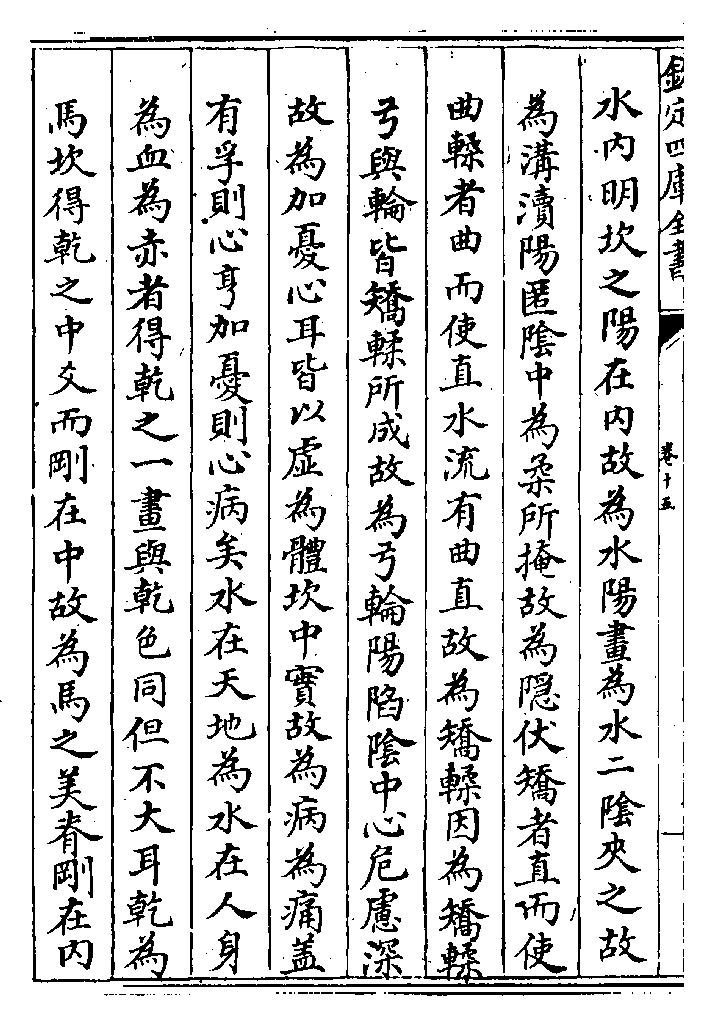 欽定四庫全書
卷十五
水内明坎之陽在内故為水陽畫為水二隂夾之故
為溝瀆陽匿隂中為柔所掩故為隠伏矯者直而使
曲輮者曲而使直水流有曲直故為矯輮因為矯輮
弓與輪皆矯輮所成故為弓輪陽陷隂中心危慮深
故為加憂心耳皆以虚為體坎中實故為病為痛盖
有孚則心亨加憂則心病矣水在天地為水在人身
為血為赤者得乾之一畫與乾色同但不大耳乾為
馬坎得乾之中爻而剛在中故為馬之美脊剛在内